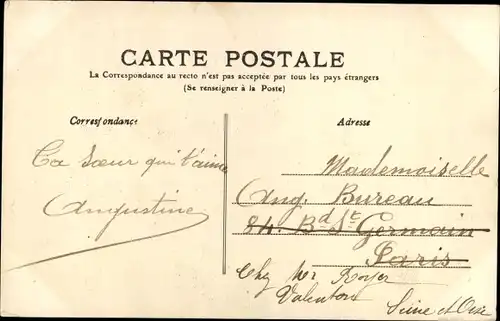 CARTE POSTALE
La Correspondance au recto n'est pas acceptée par tous les pays étrangers
(Se renseigner à la Poste)
Correspondance
Adresse
Ta Sœur qui t'aime
Augustine
Mademoiselle
Aug. Bureau
84. Bd St Germain
Paris
Chez Mr Royer
Valenton
Seine et Oise